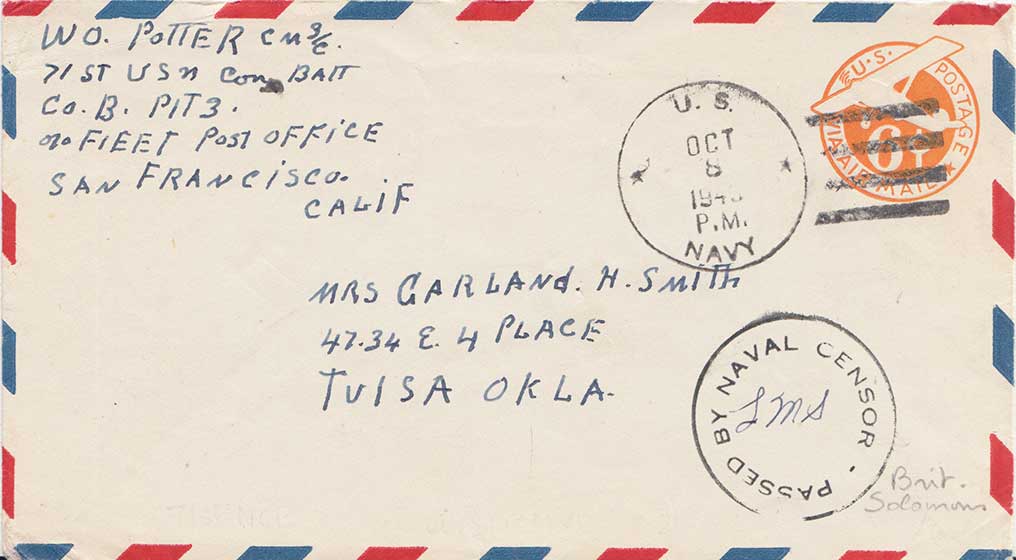 WO. POTTER CM3/C.
71ST USN Con. BATT
CO. B. PlT 3.
c/o FlEET POST OFFICE
SAN FRANCISCO.
CALIF
U. S.
OCT
8
P.M.
NAVY
U.S. POSTAGE
6¢
VIA AIR MAIL
MRS GARLANd. H. SMITH
47.34 E. 4 PLACE
TUlSA OKLA.
PASSED BY NAVAL CENSOR
LMS
Brit.
Solomons